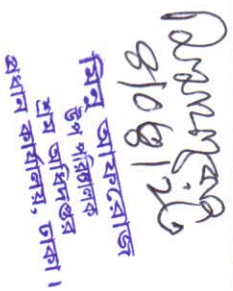 মিনু আফরোজ
উপ পরিচালক
শ্রম অধিদপ্তর
প্রধান কার্যালয়, ঢাকা।